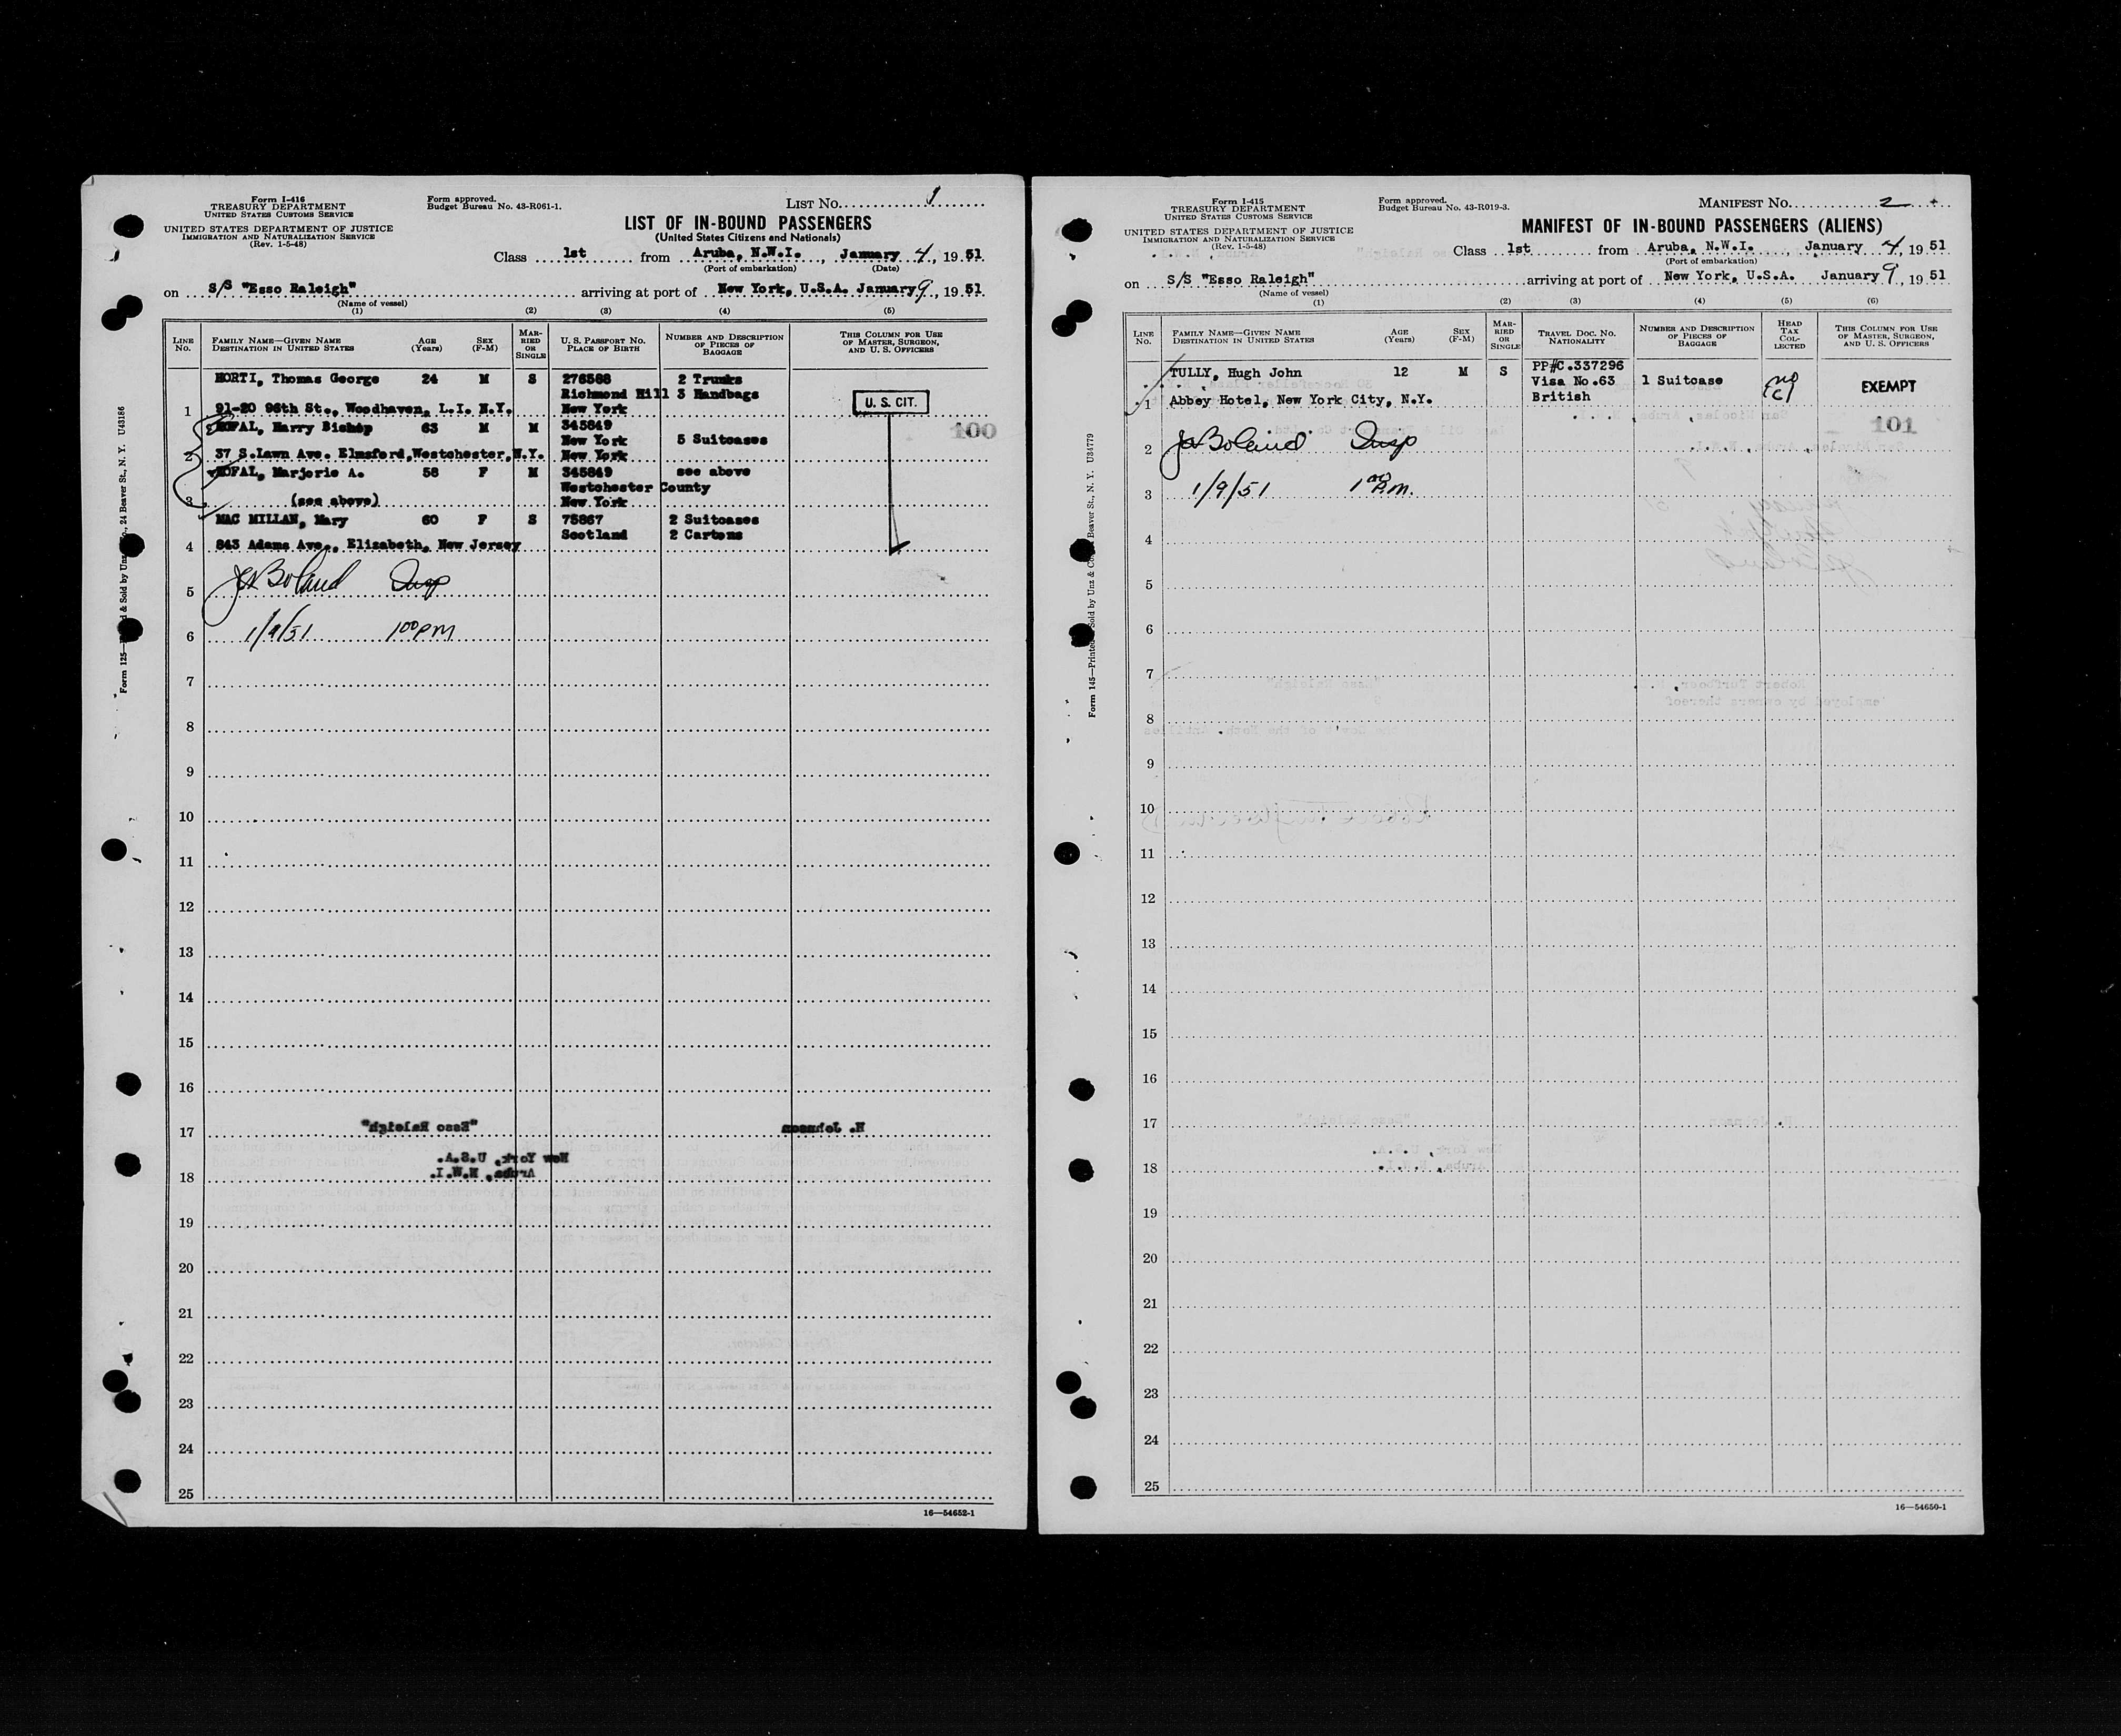 Form I-416
TREASURY DEPARTMENT
UNITED STATES CUSTOMS SERVICE
UNITED STATES DEPARTMENT OF JUSTICE
IMMIGRATION AND NATURALIZATION SERVICE
(Rev. 1-5-48)
Form approved.
Budget Bureau No. 43-R061-1.
LIST No. 1
LIST OF IN-BOUND PASSENGERS
(United States Citizens and Nationals)
Class 1st from Aruba, N.W.I., January 4, 1951
(Port of embarkation) (Date)
on S/S "Esso Raleigh" arriving at port of New York, U.S.A. January 9, 1951
(Name of vessel)
(1) (2) (3) (4) (5)
LINE No. FAMILY NAME—GIVEN NAME DESTINATION IN UNITED STATES AGE (Years) SEX (F-M) MARRIED OR SINGLE U. S. PASSPORT No. PLACE OF BIRTH NUMBER AND DESCRIPTION OF PIECES OF BAGGAGE THIS COLUMN FOR USE OF MASTER, SURGEON, AND U. S. OFFICERS
HORTI, Thomas George 24 M S 276588 2 Trunks
Richmond Hill 3 Handbags
1 91-20 96th St., Woodhaven, L.I. N.Y. New York
U. S. CIT.
100
Harry Bishop 63 M M 345849
New York 5 Suitcases
2 37 S.Lawn Ave. Elmsford,Westchester,N.Y. New York
Marjorie A. 58 F M 345849 see above
Westchester County
3 (see above) New York
MAC MILLAN, Mary 60 F S 75867 2 Suitcases
Scotland 2 Cartons
4 843 Adams Ave., Elizabeth, New Jersey
5 Boland Insp
6 1/9/51 1 00 PM
7
8
9
10
11
12
13
14
15
16
17 "Esso Raleigh" H. Johnson
New York, U.S.A.
18 Aruba, N.W.I.
19
20
21
22
23
24
25
16—54652-1
Form I-415
TREASURY DEPARTMENT
UNITED STATES CUSTOMS SERVICE
UNITED STATES DEPARTMENT OF JUSTICE
IMMIGRATION AND NATURALIZATION SERVICE
(Rev. 1-5-48)
Form approved.
Budget Bureau No. 43-R019-3.
MANIFEST No. 2
MANIFEST OF IN-BOUND PASSENGERS (ALIENS)
Class 1st from Aruba, N.W.I., January 4, 1951
(Port of embarkation)
on S/S "Esso Raleigh" arriving at port of New York, U.S.A. January 9, 1951
(Name of vessel)
(1) (2) (3) (4) (5) (6)
LINE No. FAMILY NAME—GIVEN NAME DESTINATION IN UNITED STATES AGE (Years) SEX (F-M) MARRIED OR SINGLE TRAVEL DOC. No. NATIONALITY NUMBER AND DESCRIPTION OF PIECES OF BAGGAGE HEAD TAX COLLECTED THIS COLUMN FOR USE OF MASTER, SURGEON, AND U. S. OFFICERS
PP#C.337296
TULLY, Hugh John 12 M S Visa No.63 1 Suitcase EXEMPT
1 Abbey Hotel, New York City, N.Y. British
101
2 Boland Insp
3 1/9/51 1 00 P.M.
4
5
6
7
8
9
10
11
12
13
14
15
16
17
18
19
20
21
22
23
24
25
16—54650-1